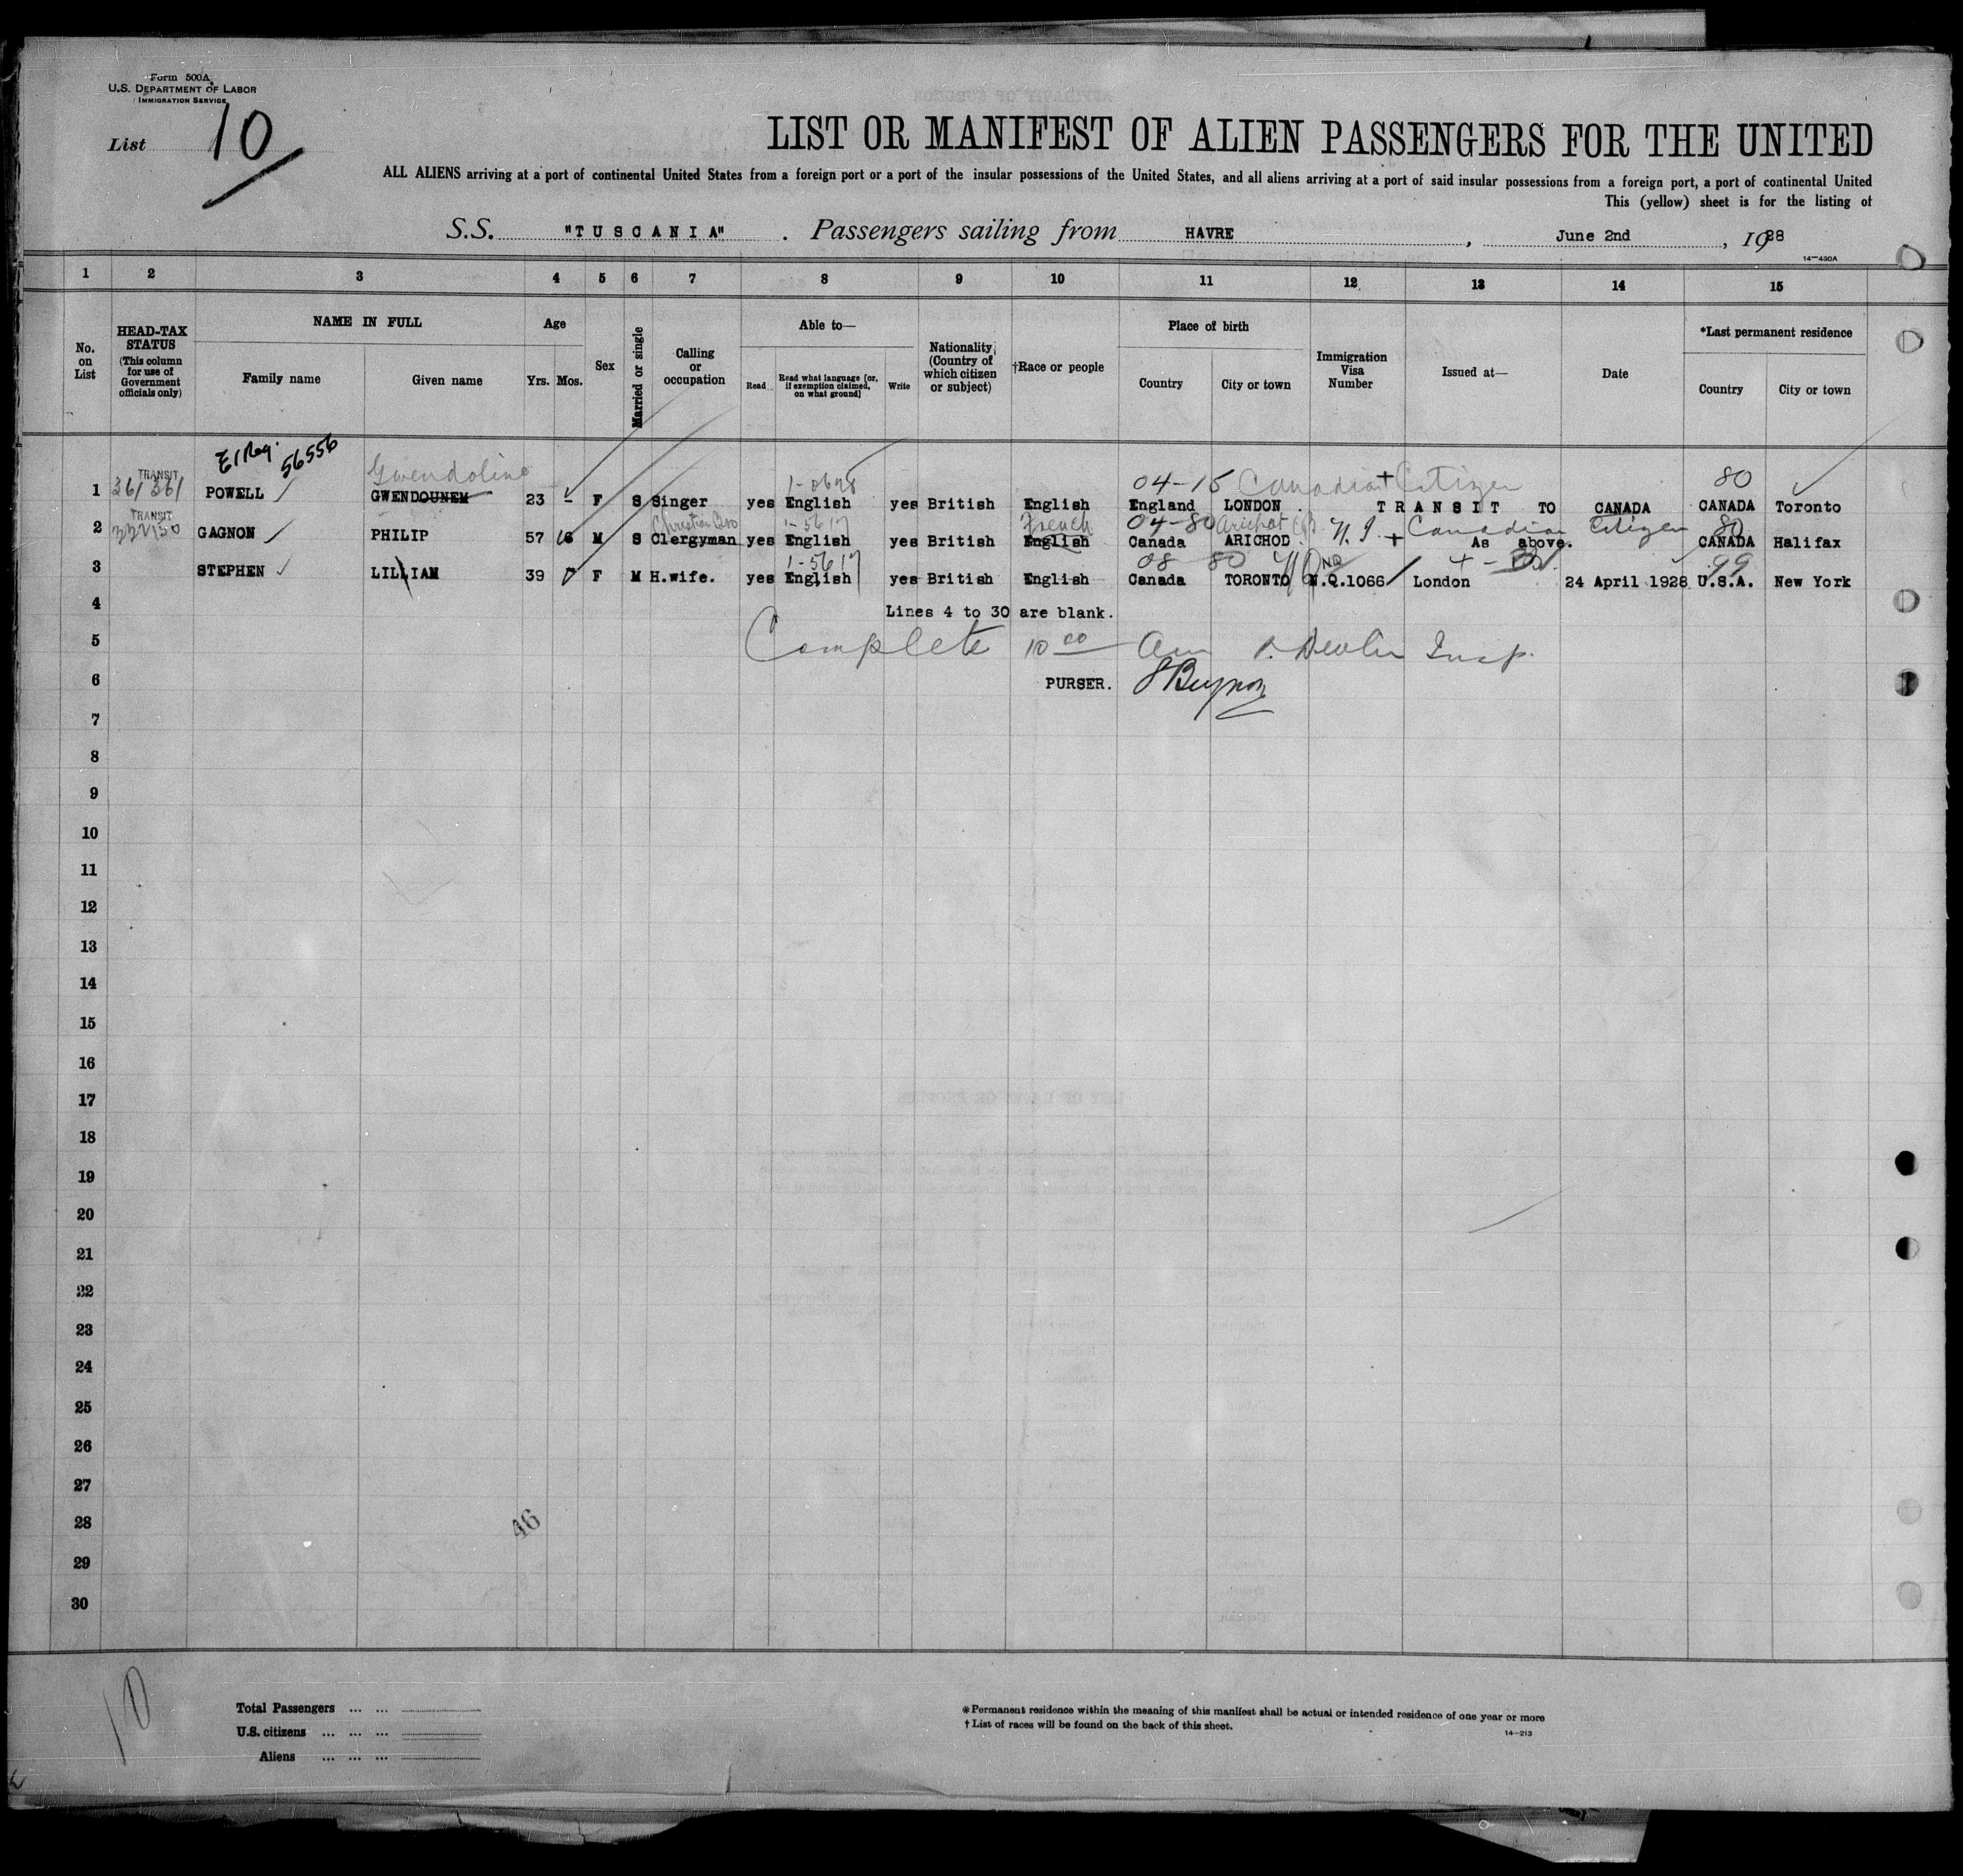 Form 500A
U.S. DEPARTMENT OF LABOR
IMMIGRATION SERVICE
List 10
LIST OR MANIFEST OF ALIEN PASSENGERS FOR THE UNITED
ALL ALIENS arriving at a port of continental United States from a foreign port or a port of the insular possessions of the United States, and all aliens arriving at a port of said insular possessions from a foreign port, a port of continental United
This (yellow) sheet is for the listing of
S.S. "TUSCANIA". Passengers sailing from HAVRE, June 2nd, 1928
14—430A
1 2 3 4 5 6 7 8 9 10 11 12 13 14 15
No. on List
HEAD-TAX STATUS (This column for use of Government officials only)
NAME IN FULL
Family name
Given name
Age
Yrs. Mos.
Sex
Married or single
Calling or occupation
Able to—
Read
Read what language [or, if exemption claimed, on what ground]
Write
Nationality (Country of which citizen or subject)
†Race or people
Place of birth
Country
City or town
Immigration Visa Number
Issued at—
Date
*Last permanent residence
Country
City or town
56556
Gwendoline
TRANSIT 04-15 Canadian + Citizen 80
361 361
1 POWELL GWENDOUNEM 23 - F S Singer yes English yes British English England LONDON TRANSIT TO CANADA CANADA Toronto
TRANSIT Christian Bro 1-5617 French 04-80 Arichat Canadian Citizen 80
2 GAGNON PHILIP 57 6 M S Clergyman yes English yes British English Canada ARICHOD N.S. + As above. CANADA Halifax
1-5617 08 80 NQ 99
3 STEPHEN LILLIAM 39 F M H.wife. yes English yes British English Canada TORONTO N.Q.1066 London 24 April 1928 U.S.A. New York
4 Lines 4 to 30 are blank.
5 Complete 10 00 am Insp.
6 PURSER.
7
8
9
10
11
12
13
14
15
16
17
18
19
20
21
22
23
24
25
26
27
28
29
30
46
10
Total Passengers ... ...
U.S. citizens ... ... ...
Aliens ... ... ...
*Permanent residence within the meaning of this manifest shall be actual or intended residence of one year or more
†List of races will be found on the back of this sheet.
14—213